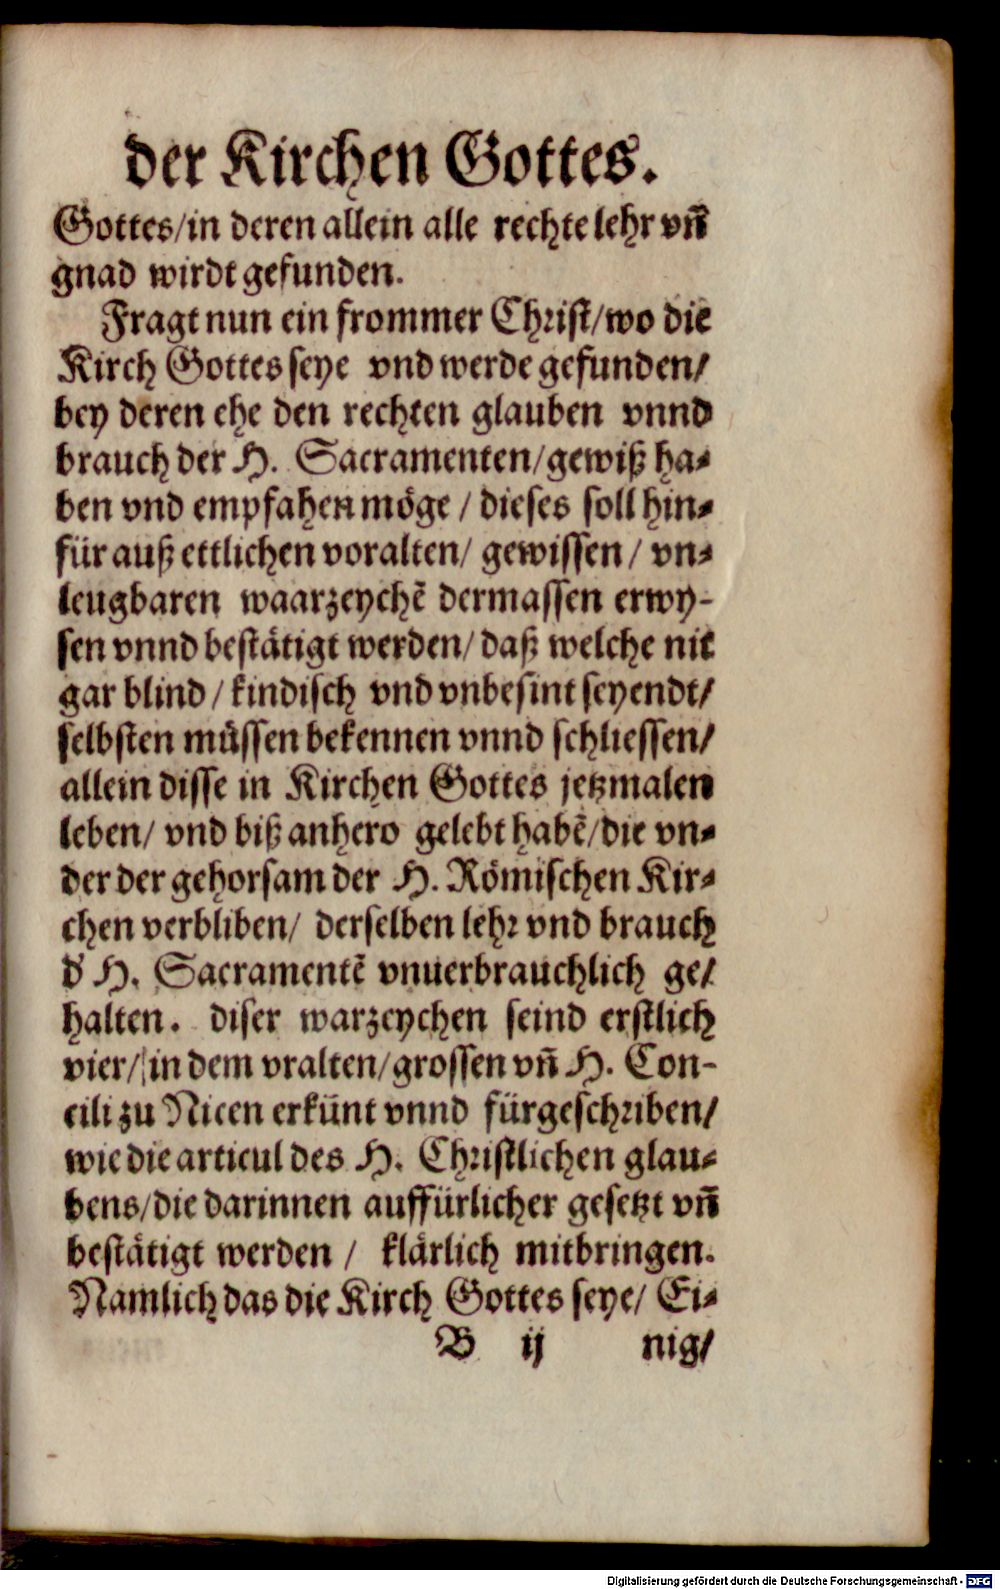 der Kirchen Gottes.
Gottes/in deren allein alle rechte lehr vñ
gnad wirdt gefunden.
Fragt nun ein frommer Christ/wo die
Kirch Gottes seye vnd werde gefunden/
bey deren ehe den rechten glauben vnnd
brauch der H. Sacramenten/gewiß ha-
ben vnd empfahen möge / dieses soll hin-
für auß ettlichen voralten/ gewissen / vn-
leugbaren waarzeychẽ dermassen erwy-
sen vnnd bestätigt werden/ daß welche nit
gar blind / kindisch vnd vnbesint seyendt/
selbsten müssen bekennen vnnd schliessen/
allein disse in Kirchen Gottes jetzmalen
leben/ vnd biß anhero gelebt habẽ/die vn-
der der gehorsam der H. Römischen Kir-
chen verbliben/ derselben lehr vnd brauch
d' H. Sacramentẽ vnuerbrauchlich ge/
halten. diser warzeychen seind erstlich
vier/ in dem vralten/grossen vñ H. Con-
cili zu Nicen erkũnt vnnd fürgeschriben/
wie die articul des H. Christlichen glau-
bens/die darinnen auffürlicher gesetzt vñ
bestätigt werden / klärlich mitbringen.
Namlich das die Kirch Gottes seye/ Ei-
B ij nig/
Digitalisierung gefördert durch die Deutsche Forschungsgemeinschaft - DFG